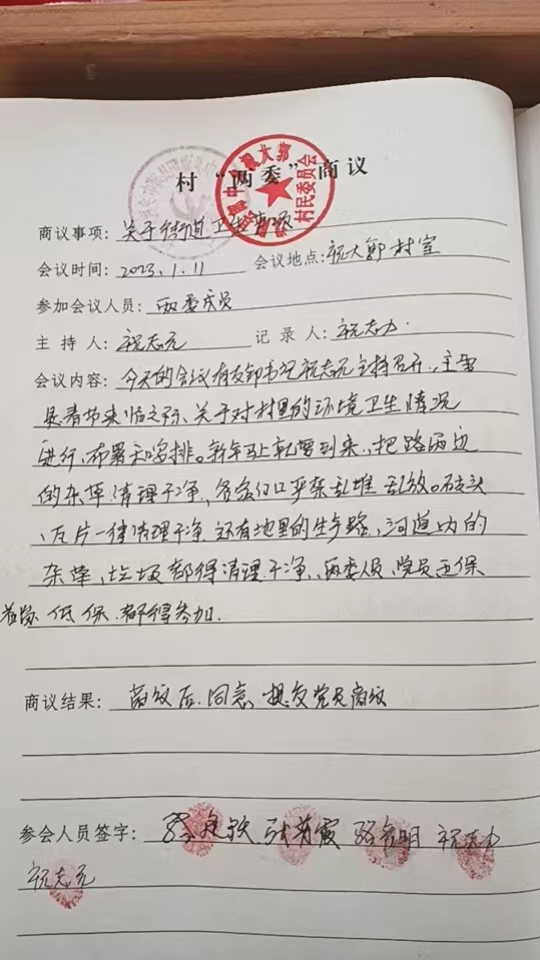 村“两委”商议
村民委员会
商议事项: 关于街道卫生事项
会议时间: 2023.1.11 会议地点: 祝大郭村室
参加会议人员: 两委成员
主持人: 祝志元 记录人: 祝志力
会议内容: 今天的会议有支部书记祝志元主持召开, 主要
是春节来临之际、关于对村里的环境卫生情况
进行、布署和安排。新年马上就要到来, 把路两边
的杂草清理干净, 各家门口严禁乱堆乱放。砖头
、瓦片一律清理干净 还有地里的生步路、河道内的
杂草、垃圾都得清理干净、两委人员、党员
低保都得参加.
商议结果: 商议后、同意、提交党员商议
参会人员签字: 祝志力
祝志元